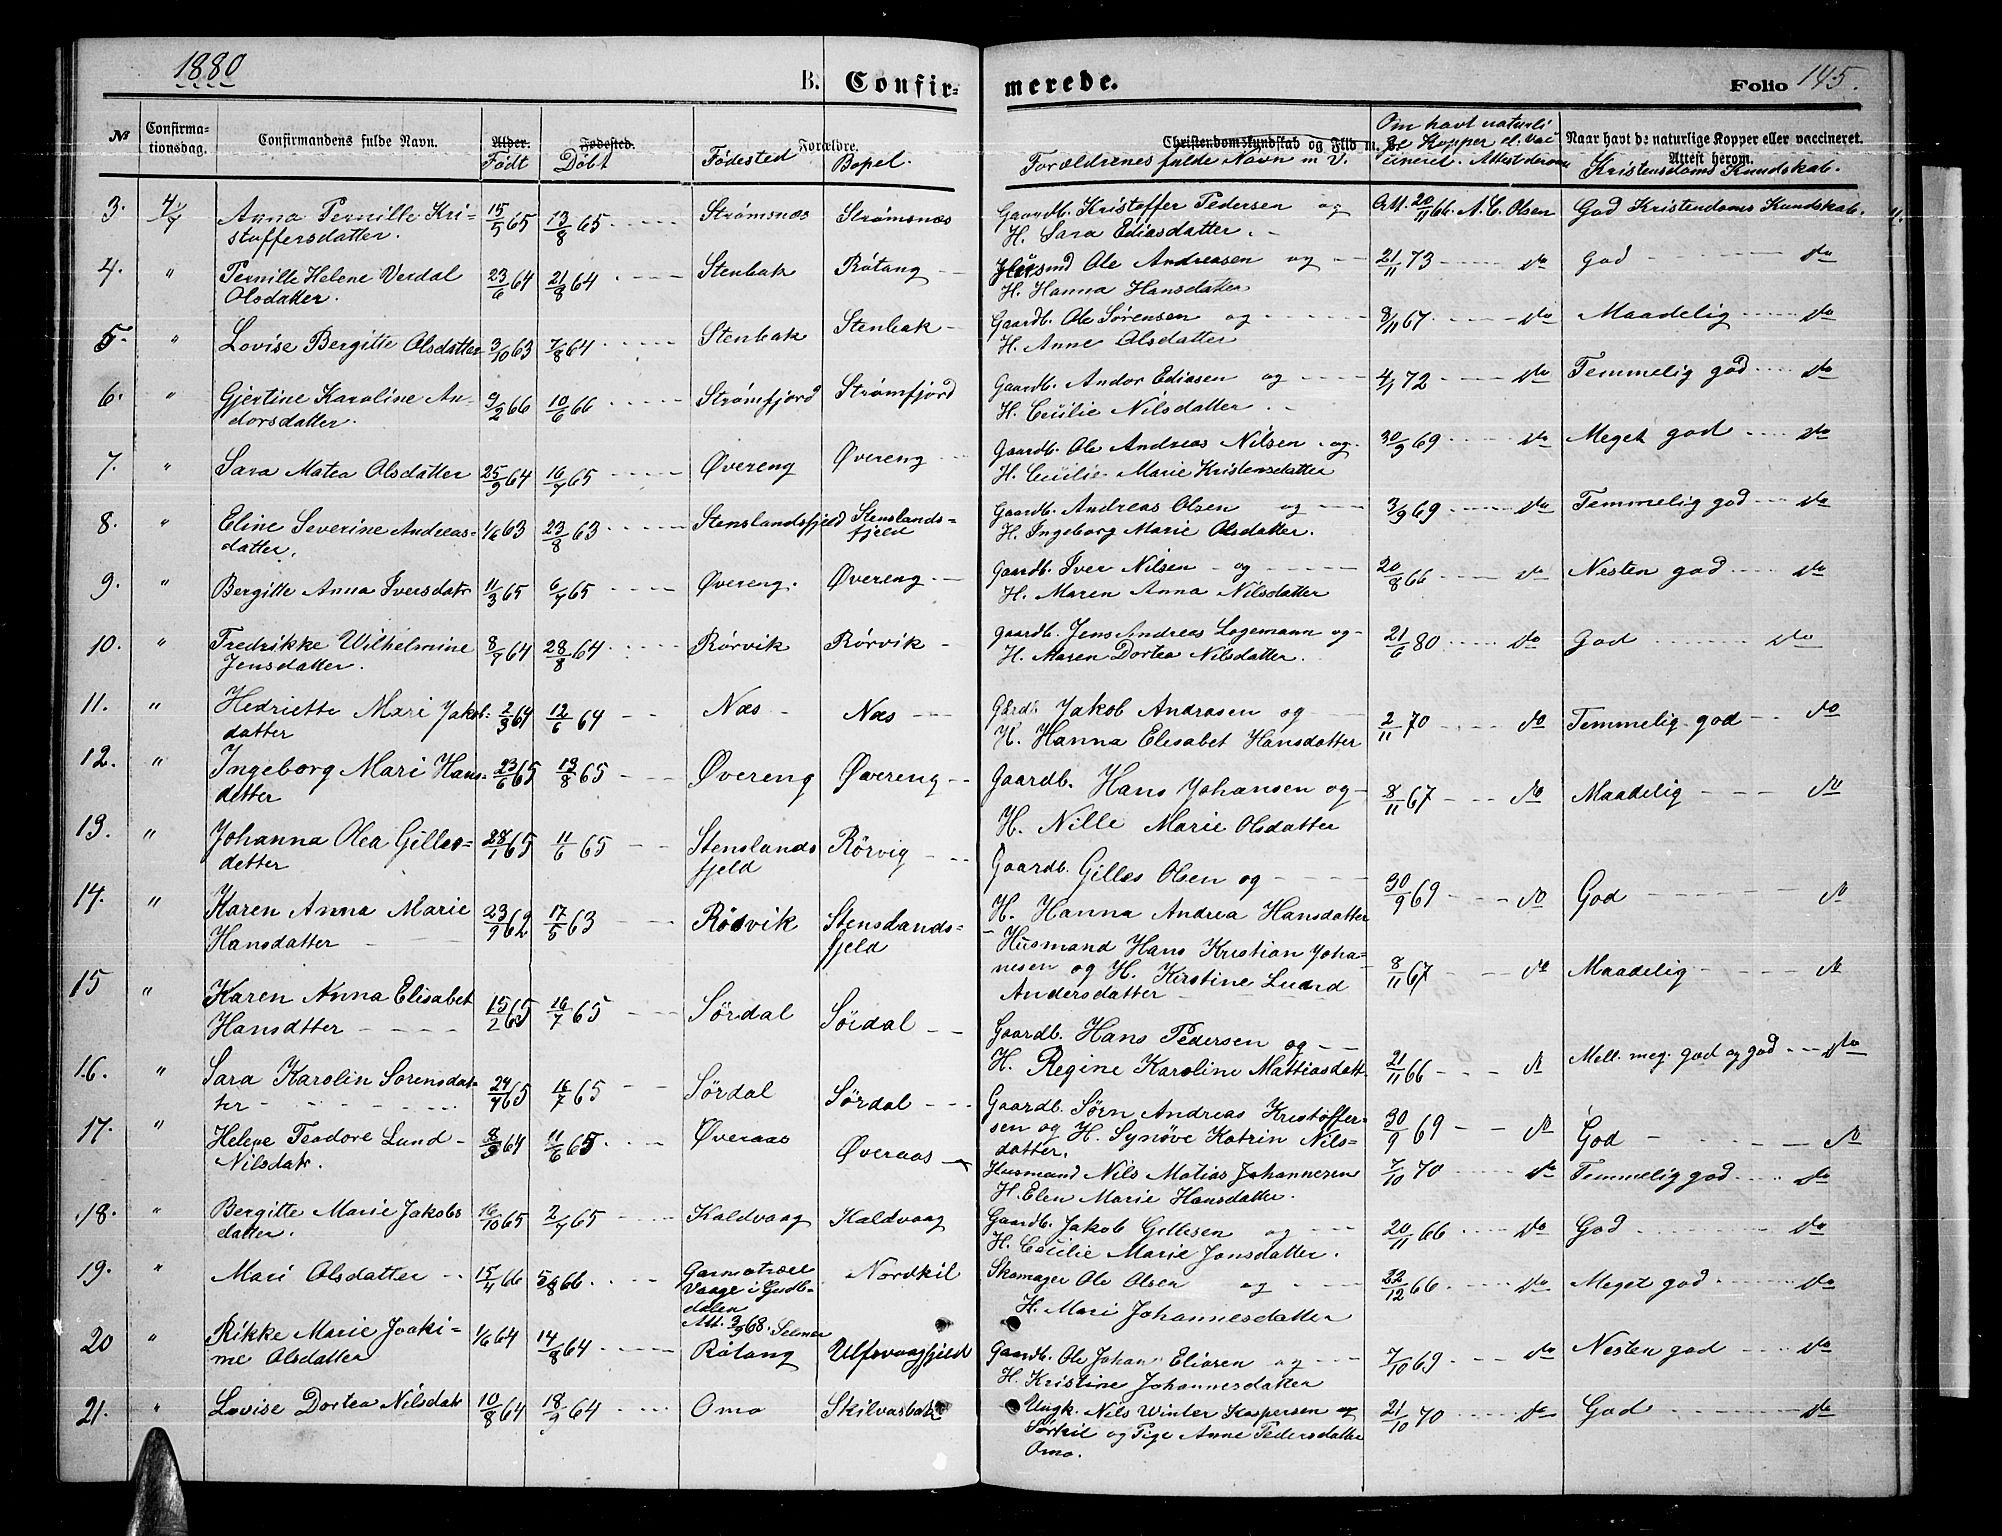 1880
B. Confirmerede.
Folio 145.
№
Confirmationsdag.
Confirmandens fulde Navn.
Alder. Født
Fødested. Døbt
Forældre.
Fødested
Bopel.
Christendomskundskab og Flid m. v.
Forældrenes fulde Navn m. V.
Om havt naturlige Kopper el. vaccineret. Attest derom
Naar havt de naturlige Kopper eller vaccineret. Attest herom.
Kristensdoms Kundskab.
3. 4/7 Anna Pernille Kristoffersdatter. 15/5 65 13/8 65 Strømsnæs Strømsnæs Gaardb. Kristoffer Pedersen og H. Sara Ediasdatter. Att. 20/11 66. A. C. Olsen God Kristendoms Kundskab.
4. " Pernille Helene Verdal Olsdatter. 23/6 64 21/8 64 Stenbak Røtang Ole Andreasen og H. Hanna Hansdatter 21/11 73 do God do
5. " Lovise Bergitte Olsdatter 3/10 63 7/8 64 Stenbak Stenbak Gaardb. Ole Sørensen og H. Anne Olsdatter 8/11 67 do Maadelig do
6. " Gjertine Karoline Andorsdatter. 9/2 66 10/6 66 Strømfjord Strømfjord Gaardb. Andor Ediasen og H. Cecilie Nilsdatter. 4/1 72 do Temmelig god do
7. " Sara Matea Olsdatter 25/9 64 16/7 65 Øvereng Øvereng Gaardb. Ole Andreas Nilsen og H. Cecilie Marie Kristensdatter 30/9 69 do Meget god do
8. " Eline Severine Andreasdatter. 1/6 63 23/8 63 Stenslandsfjeld Stenslandsfjeld Gaardb. Andreas Olsen og H. Ingeborg Marie Olsdatter. 3/9 69 do Temmelig god do
9. " Bergitte Anna Iversdatr 11/3 65 6/7 65 Øvereng. Øvereng Gaardb. Iver Nilsen og H. Maren Anna Nilsdatter 20/8 66 do Nesten god do
10. " Fredrikke Wilhelmine Jensdatter. 8/7 64 28/8 64 Rørvik Rørvik Gaardb. Jens Andreas Logemann og H. Maren Dortea Nilsdatter. 21/6 80 do God do
11. " Hedriette Mari Jakobdatter 2/3 64 12/6 64 Næs Næs Gårdb. Jakob Andrasen og H. Hanna Elisabet Hansdatter 2/11 70 do Temmelig god do
12. " Ingeborg Mari Hansdetter 23/6 65 13/8 65 Øvereng Øvereng Gaardb. Hans Johansen og H. Nille Marie Olsdatter 8/11 67 do Maadelig do
13. " Johanna Olea Gillesdetter 28/1 65 11/6 65 Stenslandsfjeld Rørvig Gaardb. Gilles Olsen og H. Hanna Andrea Hansdatter 30/9 69 do God do
14. " Karen Anna Marie Hansdatter 23/9 62 17/5 63 Rødvik Stenslandsfjeld Husmand Hans Kristian Johanesen og H. Kirstine Lund Andersdatter 8/11 67 do Maadelig do
15 " Karen Anna Elisabet Hansdtter 15/2 65 16/7 65 Sørdal Sørdal Gaardb. Hans Pedersen og H. Regine Karoline Mattiasdatt. 21/11 66 do Mell. meg. god og god do
16. " Sara Karolin Sorensdatter 24/4 65 16/7 65 Sørdal Sørdal Gaardb. Sørn Andreas Kristoffersen og H. Synøve Katrin Nilsdatter. 30/9 69 do God do
17. " Helene Teodore Lund Nilsdatr. 8/9 64 11/6 65 Øveraas Øveraas Husmand Nils Matias Johannesen H. Elen Marie Hansdatter. 7/10 70 do Temmelig god do
18. " Bergitte Marie Jakobsdatter. 16/10 65 2/7 65 Kaldvaag Kaldvaag Gaardb. Jakob Gillesen og H. Cecilie Marie Jonsdatter. 20/11 66 do God do
19. " Mari Olsdatter 15/4 66 5/8 66. Vaage i Gudbdalen Att. 3/9 68. Selmer Nordkil Skomager Ole Olsen og H. Mari Johannesdatter 22/12 66 do Meget god do
20 " Rikke Marie Joakime Olsdatter 1/6 64 14/8 64 Røtang Ulfsvaagfjeld Gaardb. Ole Johan Eliasen og H. Kristine Johannesdatter 7/10 69 do Nesten god do
21. " Lovise Dortea Nilsdatr 10/8 64 18/9 64 Omo Skilvasbak Ungk. Nils Winter Kaspersen Sørkil og Pige Anne Pedersdatter Omo. 21/10 70 do God do